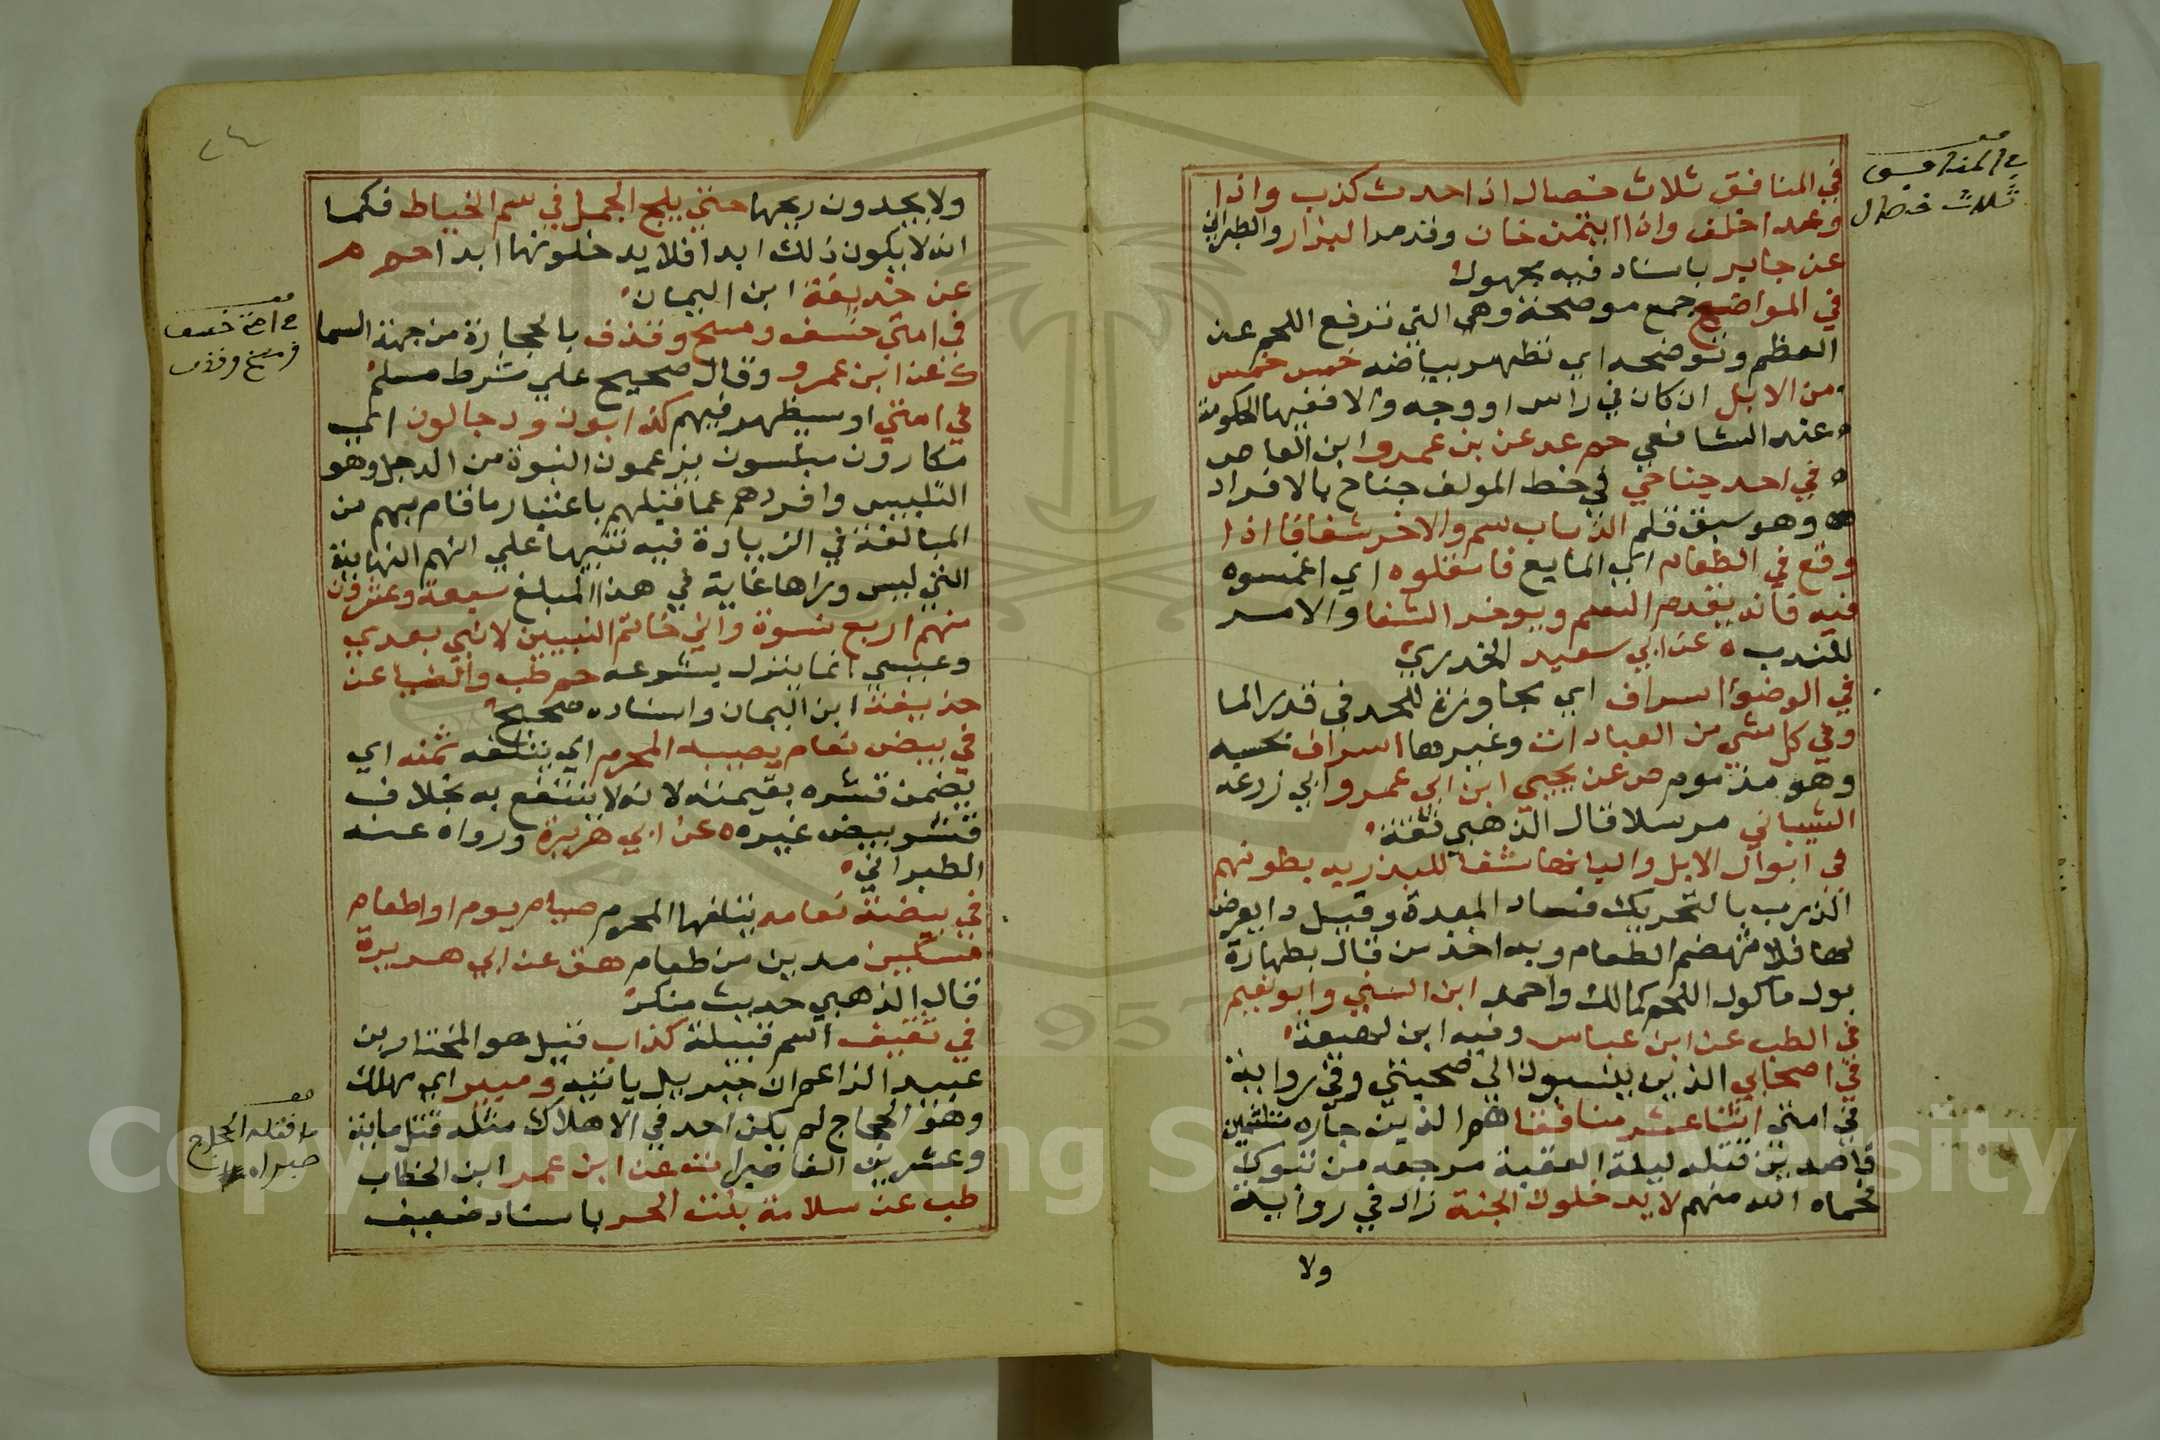 في المنافق ثلاث خصال اذا حدث كذب واذا
وعد اخلف واذا ايتمن خان وقد مر البزار والطبراني
عن جابر باسناد فيه مجهول
في المواضح جمع موضحة وهي التي ترفع اللحم عن
العظم وتوضحه اي تظهر بياضه خمس خمس
من الابل ان كان في راس او وجه والا ففيها الحكومة
عند الشافعي حم عد عن بن عمرو ابن العاص
في احد جناحي في خط المولف جناح بالافراد
وهو سبق قلم الذباب سم والاخر شفا فاذا
وقع في الطعام اي المايع فامقلوه اي اغمسوه
فيه فانه يقدم السم ويوخر الشفا والامر
للندب ه عن ابي سعيد الخدري
في الوضوا اسراف اي مجاوزة للحد في قدر الما
وفي كل شي من العبادات وغيرها اسراف بحسبه
وهو مذموم ص عن يحيي ابن ابي عمرو ابي زرعه
الشيباني مرسلا قال الذهبي ثقة
في ابوال الابل والبانها شفا للذربه بطونهم
الذرب بالتحريك فساد المعدة وقيل دا يعرض
لها فلا تهضم الطعام وبه اخذ من قال بطهارة
بول ماكول اللحم كمالك واحمد ابن السني وابو نعيم
في الطب عن ابن عباس وفيه ابن لهيعة
في اصحابي الذين ينسبون الي صحبتي وفي رواية
في امتي اثنا عشر منافقا هم الذين جاوه متلثمين
قاصدين قتله ليلة العقبة مرجعه من تبوك
فحماه الله منهم لا يدخلون الجنة زاد في رواية
ولا
في المنافق
ثلاث خصال
ولا يجدون ريحها حتي يلج الجمل في سم الخياط فكما
انه لا يكون ذلك ابدا فلا يدخلونها ابدا حم م
عن حذيفة ابن اليمان
في امتي خسف ومسخ وقذف بالحجارة من جهة السما
ك عن ابن عمرو وقال صحيح علي شرط مسلم
في امتي او سيظهر فيهم كذابون ودجالون اي
مكارون ملبسون يزعمون النبوة من الدجل وهو
التلبيس وافردهم عما قبلهم باعتبار ما قام بهم من
المبالغة في الزيادة فيه تنبيها علي انهم النهاية
التي ليس وراها غاية في هذا المبلغ سبعة وعشرون
منهم اربع نسوة واني خاتم النبيين لا نبي بعدي
وعيسي انما ينزل بشرعه حم طب والضيا عن
حذيفة ابن اليمان واسناده صحيح
في بيض نعام يصيبه المحرم اي يتلفه ثمنه اي
يضمن قشره بقيمته لانه لا ينتفع به بخلاف
قشر بيض غيره ه عن ابي هريرة ورواه عنه
الطبراني
في بيضة نعامه يتلفها المحرم صيام يوم او اطعام
مسكين مدين من طعام هق عن ابي هريرة
قال الذهبي حديث منكر
في ثقيف اسم قبيلة كذاب قيل هو المختار بن
عبيد الزاعم ان جبريل ياتيه ومبير اي مهلك
وهو الحجاج لم يكن احد في الاهلاك مثله قتل ماية
وعشرين الفا صبرا ت عن ابن عمر ابن الخطاب
طب عن سلامة بنت الحر باسناد ضعيف
في امتي خسف
ومسخ وقذف
ما قتله الحجاج
صبرا